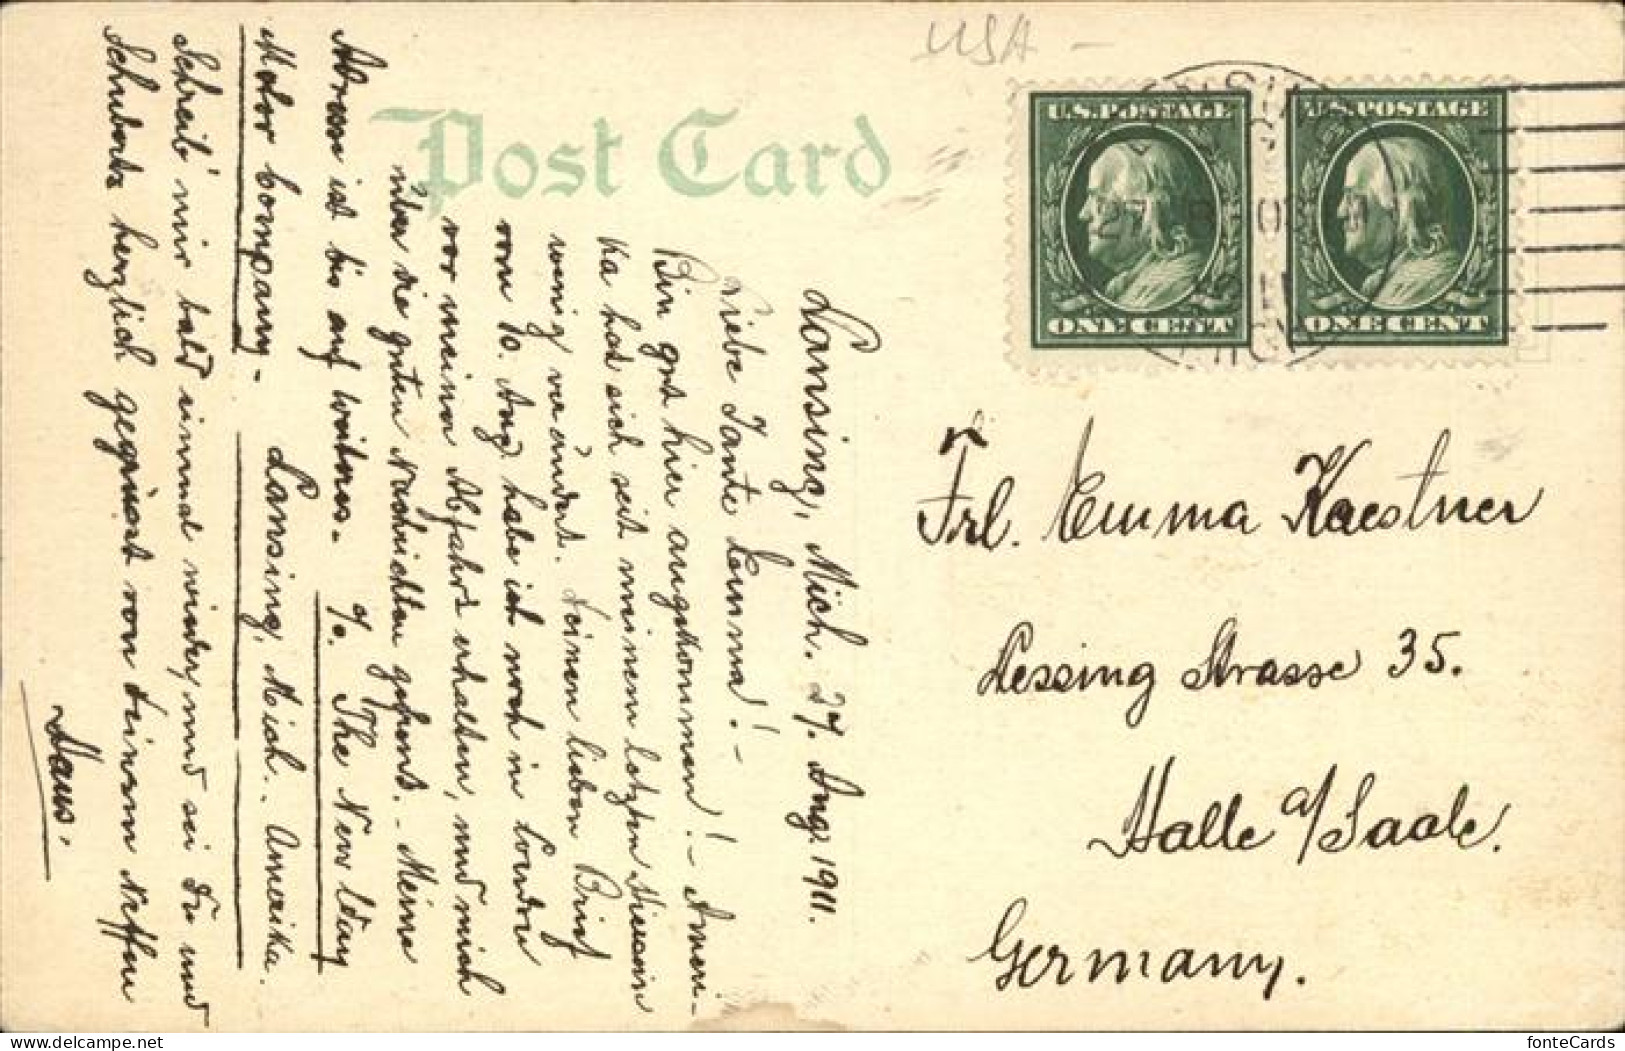 USA –
Post Card
U.S. POSTAGE
ONE CENT
U.S. POSTAGE
ONE CENT
Lansing, Mich. 27. Aug. 1911.
Liebe Tante Emma! –
Bin gut hier angekommen! – Ameri-
ka hat sich seit meinem letzten Hiersein
wenig verändert. Deinen lieben Brief
vom 10. Aug habe ich noch in London
vor meiner Abfahrt erhalten, und mich
über die guten Nachrichten gefreut. – Meine
Adresse ist bis auf Weiteres. – c/o. The New Way
Motor Company. – Lansing, Mich.. Amerika.
Schreib' mir bald einmal wieder, und sei Du und
Schuberts herzlich gegrüsst von Deinem Neffen
Hans.
Frl. Emma Kaestner
Lessing Strasse 35.
Halle a/Saale.
Germany.
fonteCards